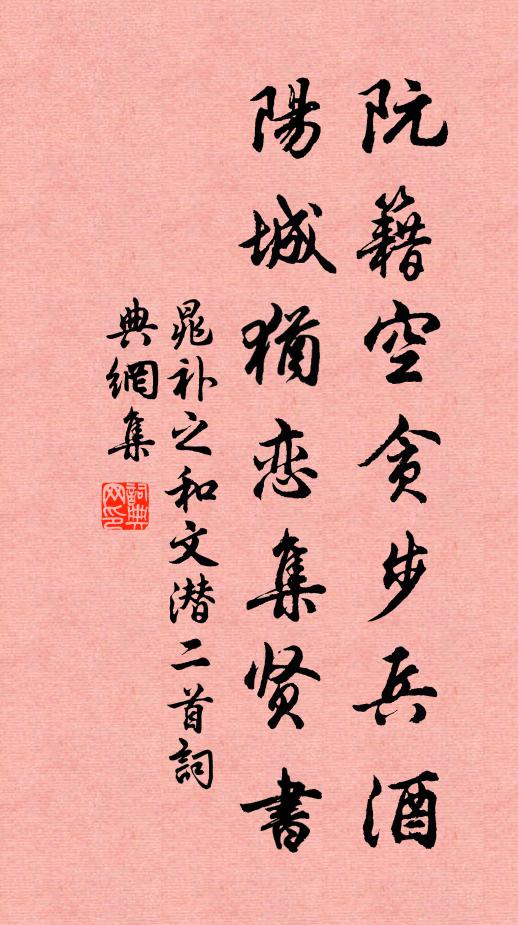 阮籍空贪步兵酒
陽城猶恋集贤書
晁补之和文潜二首詞
典網集
詞典网印